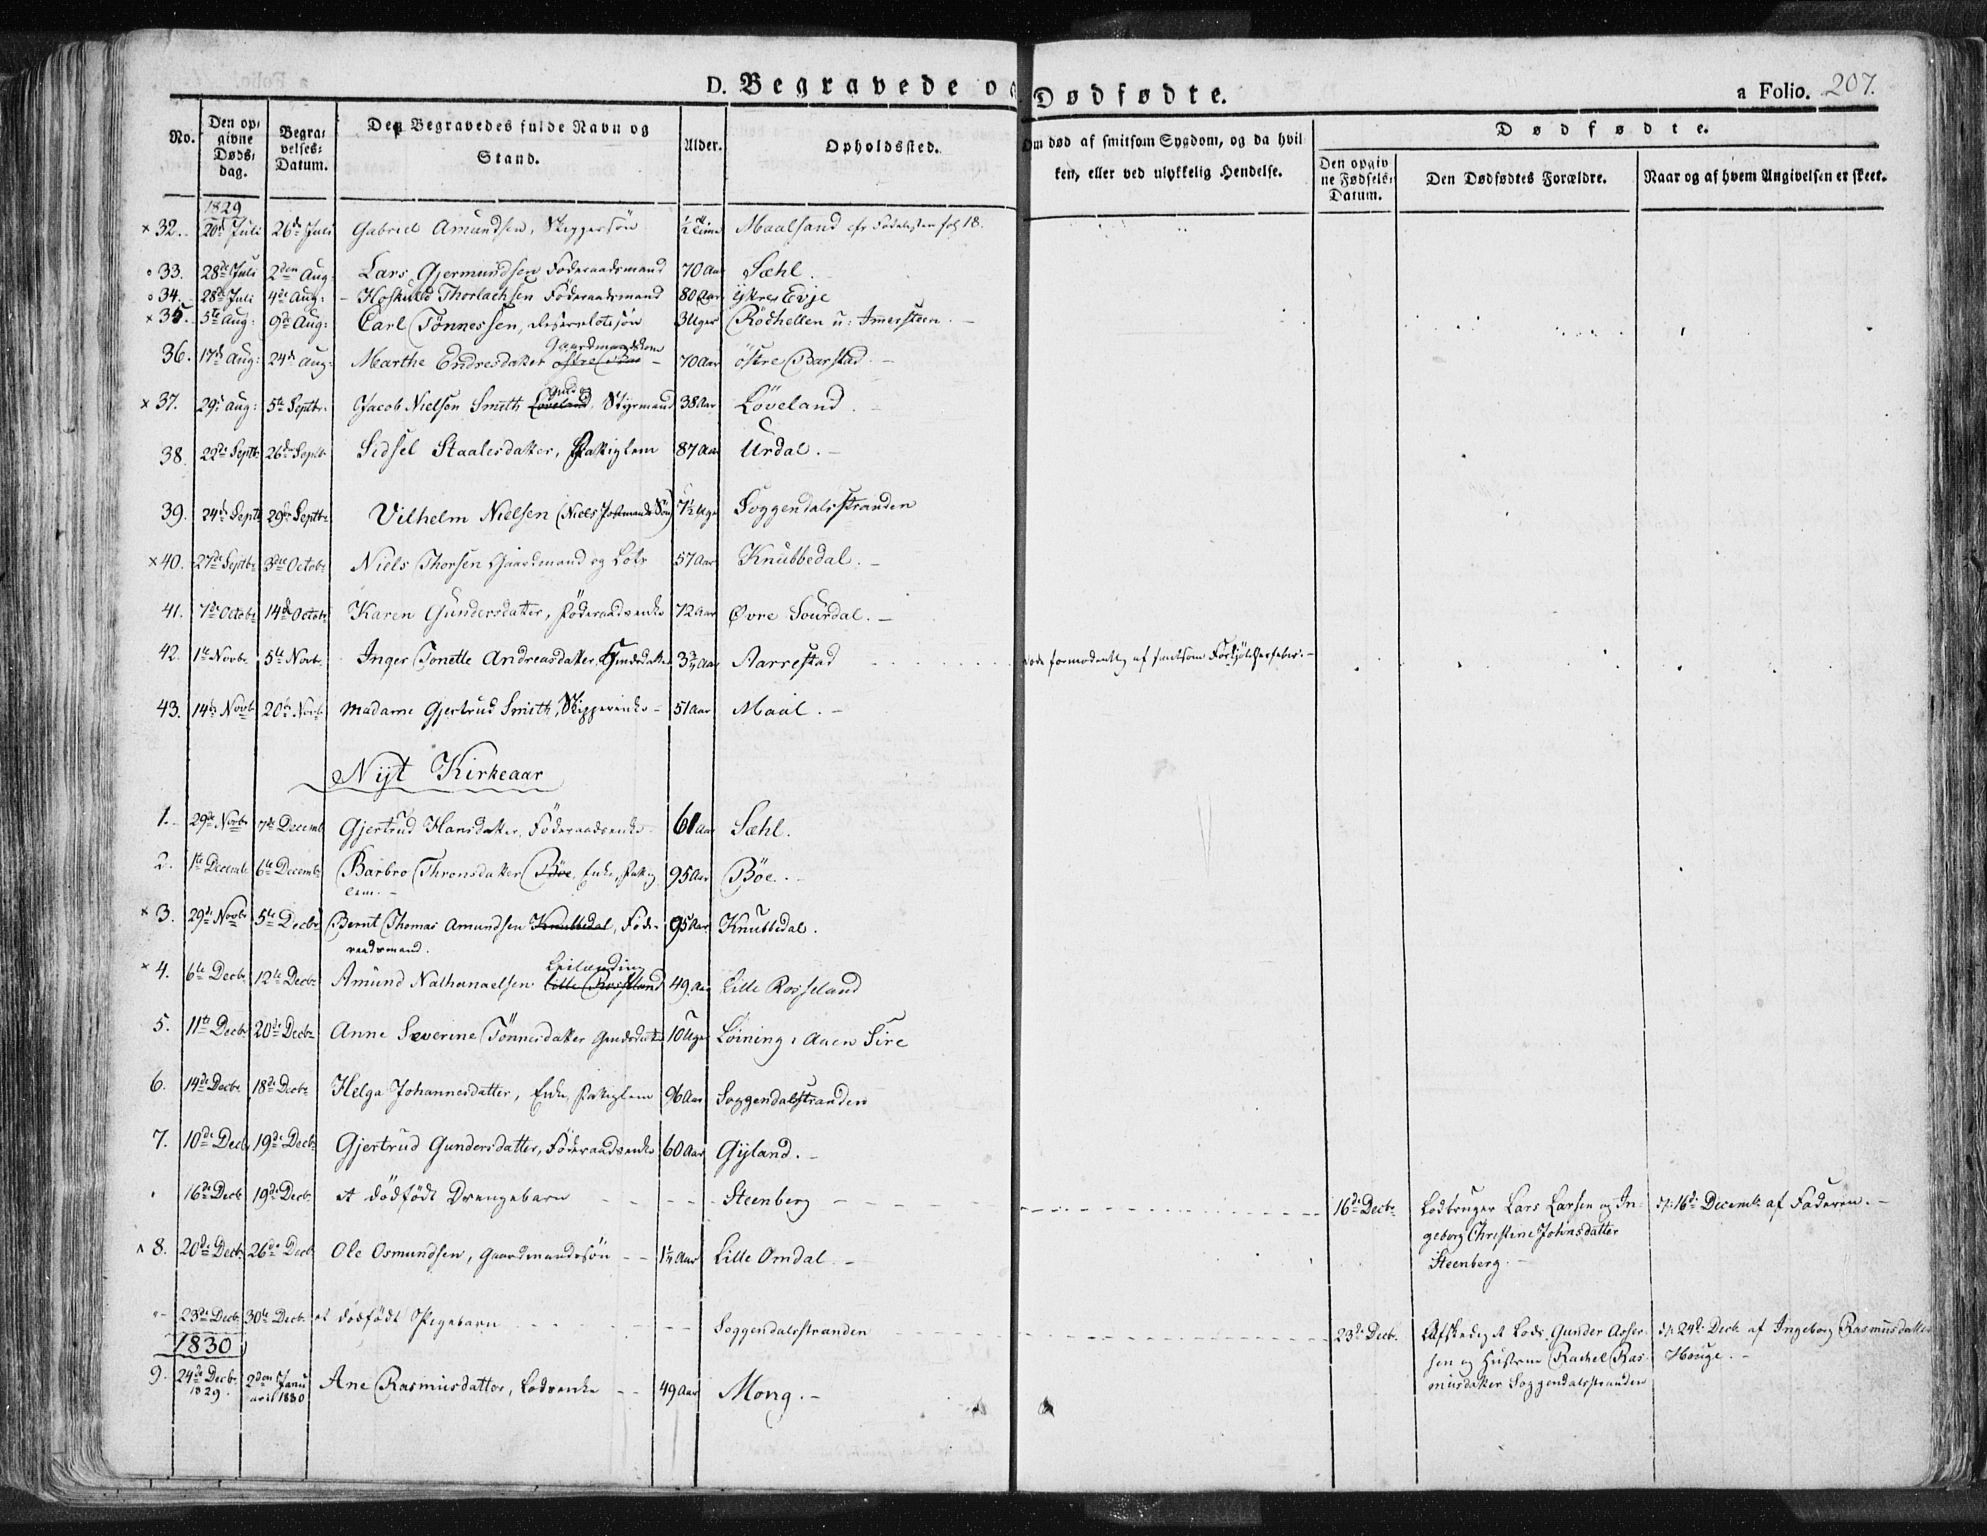 D. Begravede o Dødfødte. a Folio. 207.
No. Den opgivne Dødsdag. Begravelses-Datum. Den Begravedes fulde Navn og Stand. Alder. Opholdssted. Om død af smitsom Sygdom, og da hvilken, eller ved ulykkelig Hendelse. Dødfødte.
Den opgivne Fødsels-Datum. Den Dødfødtes Forældre. Naar og af hvem Angivelsen er skeet.
1829
× 32. 20de Juli 26de Juli Gabriel Amundsen, Skippersøn ½ Time Maalsand cfr Fødelisten fol 18.
33. 28de Juli 2den Aug: Lars Gjermundsen Føderaadsmand 70 Aar Sæhl.
34. 28de Juli 4de Aug: Thorlachsen Føderaadsmand 80 Aar Evje
× 35. 5te Aug: 9de Aug: Carl Tönnessen, 3 Uger u: Immersteen.
Gaardmandskone
36. 17de Aug: 24de Aug: Marthe Endresdatter 70 Aar östre Barstad.
× 37. 29de Aug: 5te Septbr. Jacob Nielsen Smith Löveland, Styrmand 38 Aar Löveland.
38. 22de Septbr 26de Septbr Sidsel Staalesdatter, 87 Aar Urdal.
39. 24de Septbr 29de Septbr. Vilhelm Nielsen (Niels Postmands Søn) 7½ Uge Soggendalsstranden
× 40. 27de Septbr. 3die Octobr. Niels Thorsen Gaardmand og Lods 57 Aar Knubbedal.
41. 7de Octobr 14de Octobr Karen Gundersdatter, Föderaadsenke 72 Aar Øvre Sourdal.
42. 1te Novbr. 5te Novbr. Inger Tonette Andreasdatter, 3¾ Aar Aarrestad formodentlig af smitsom Forkjölelsesfeber.
43. 14de Novbr 20de Novbr Madame Gjertrud Smith, Skipperenke 51 Aar Maal.
Nyt Kirkeaar
1. 29de Novbr 7de Decemb Gjertrud Hansdatter, Föderaadsenke 61 Aar Sæhl.
2. 1te Decembr. 6te Decembr Barbro Thronsdatter Böe, Enke, 95 Aar Böe.
lem.
× 3. 29de Novbr 5te Decbr Bernt Thomas Amundsen Knubbedal, Föde- 95 Aar Knubbedal.
raadsmand.
Leilænding
× 4. 6te Decbr 12te Decbr Amund Nathanaelsen Lille Rosseland 49 Aar Lille Rosseland
5. 11te Decbr 20de Decbr Anne Severine Tönnesdatter 10 Uger Löining i Aaen Sire
6. 14de Decbr 18de Decbr Helga Johannesdatter, Enke, 96 Aar Soggendalsstranden
7. 10de Decb 19de Decbr Gjertrud Gundersdatter, Föderaadsenke 60 Aar Gyland.
16de Decbr 19de Decbr et dödfödt Drengebarn Steenberg 16de Decbr Lodbruger Lars Larsen og In- d: 16de Decembr af Faderen.
geborg Christine Johnsdatter
Steenberg.
8. 20de Decbr. 26de Decbr. Ole Osmundsen, Gaardmandssøn 1¼ Aar Lille Omdal.
23de Decbr. 30te Decbr. et dödfödt Pigebarn Soggendalsstranden 23de Decbr. Afskediget Lods Gunder Asser- d: 24de Decbr. af Ingeborg Rasmusdatter
sen og Hustrue Rachel Ras- Houge.
musdatter Soggendalsstranden
1830
9. 24de Decbr. 1829. 2den Januarii 1830 Ane Rasmusdatter, Lodsenke 49 Aar Mong.